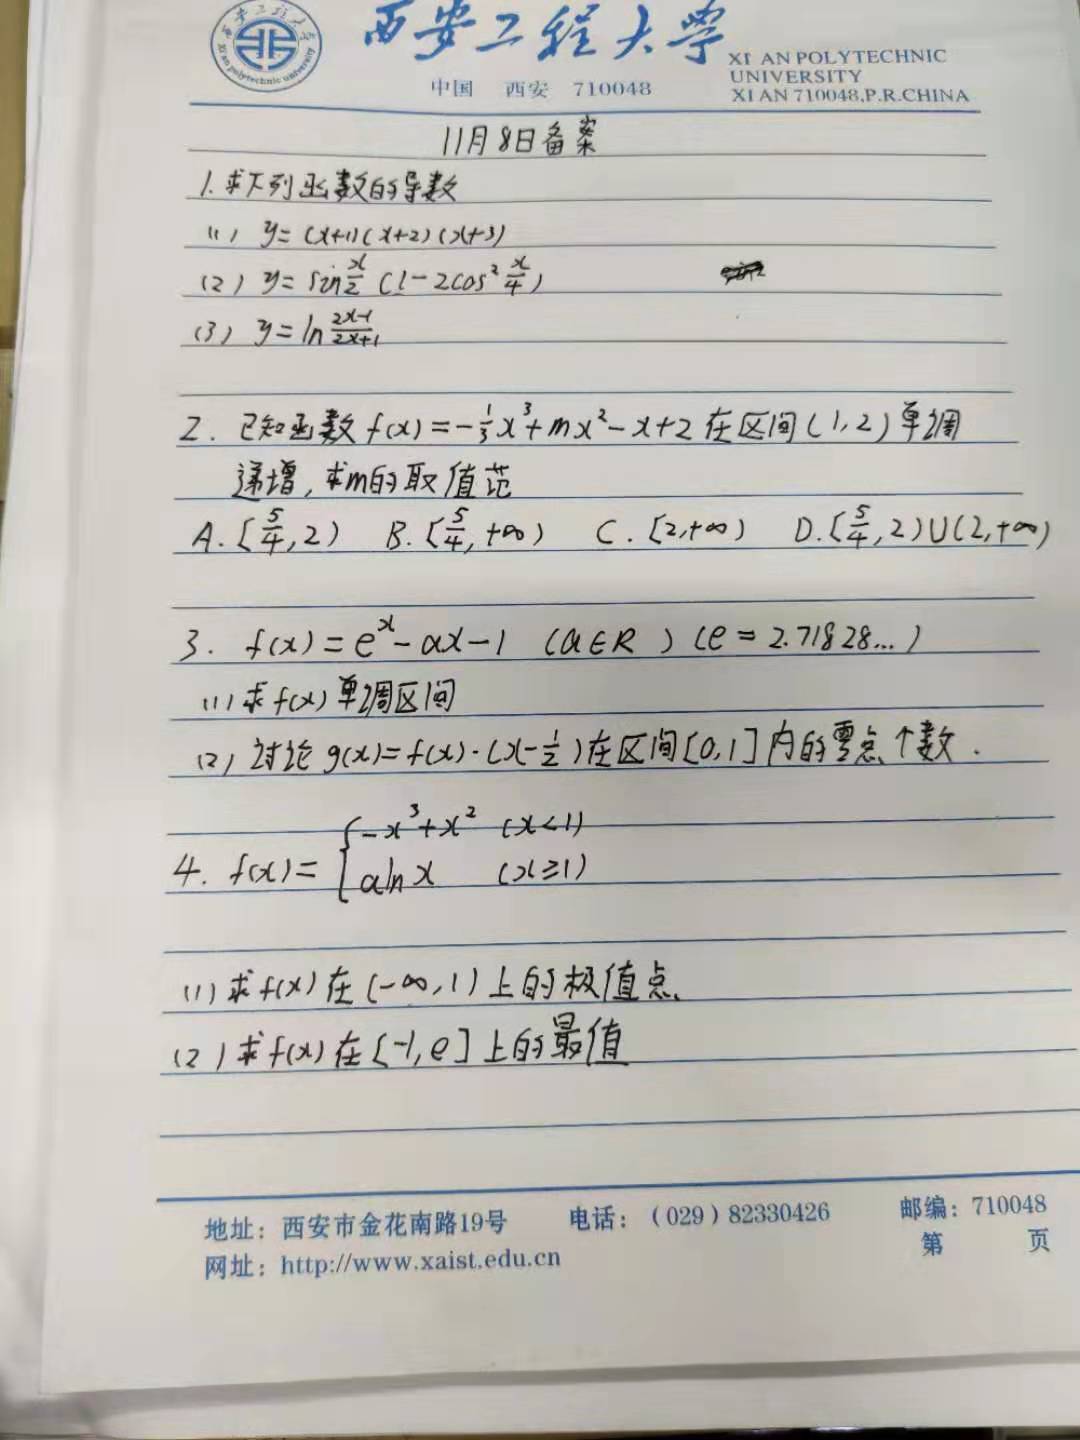 西安工程大学
XI AN POLYTECHNIC
UNIVERSITY
中国 西安 710048
XI AN 710048,P.R.CHINA
11月8日备案
1.求下列函数的导数
(1) y=(x+1)(x+2)(x+3)
(2) y=sin x/2 (1-2cos² x/4)
(3) y=ln (2x-1)/(2x+1)
2. 已知函数f(x)=-1/3x³+mx²-x+2在区间(1,2)单调
递增,求m的取值范
A.[5/4,2) B.[5/4,+∞) C.[2,+∞) D.[5/4,2)∪(2,+∞)
3. f(x)=eˣ-ax-1 (a∈R) (e=2.71828...)
(1)求f(x)单调区间
(2)讨论g(x)=f(x)·(x-1/2)在区间[0,1]内的零点个数.
4. f(x)={-x³+x² (x<1)
alnx (x≥1)
(1)求f(x)在(-∞,1)上的极值点
(2)求f(x)在[-1,e]上的最值
地址：西安市金花南路19号 电话：（029）82330426 邮编：710048
网址：http://www.xaist.edu.cn 第 页